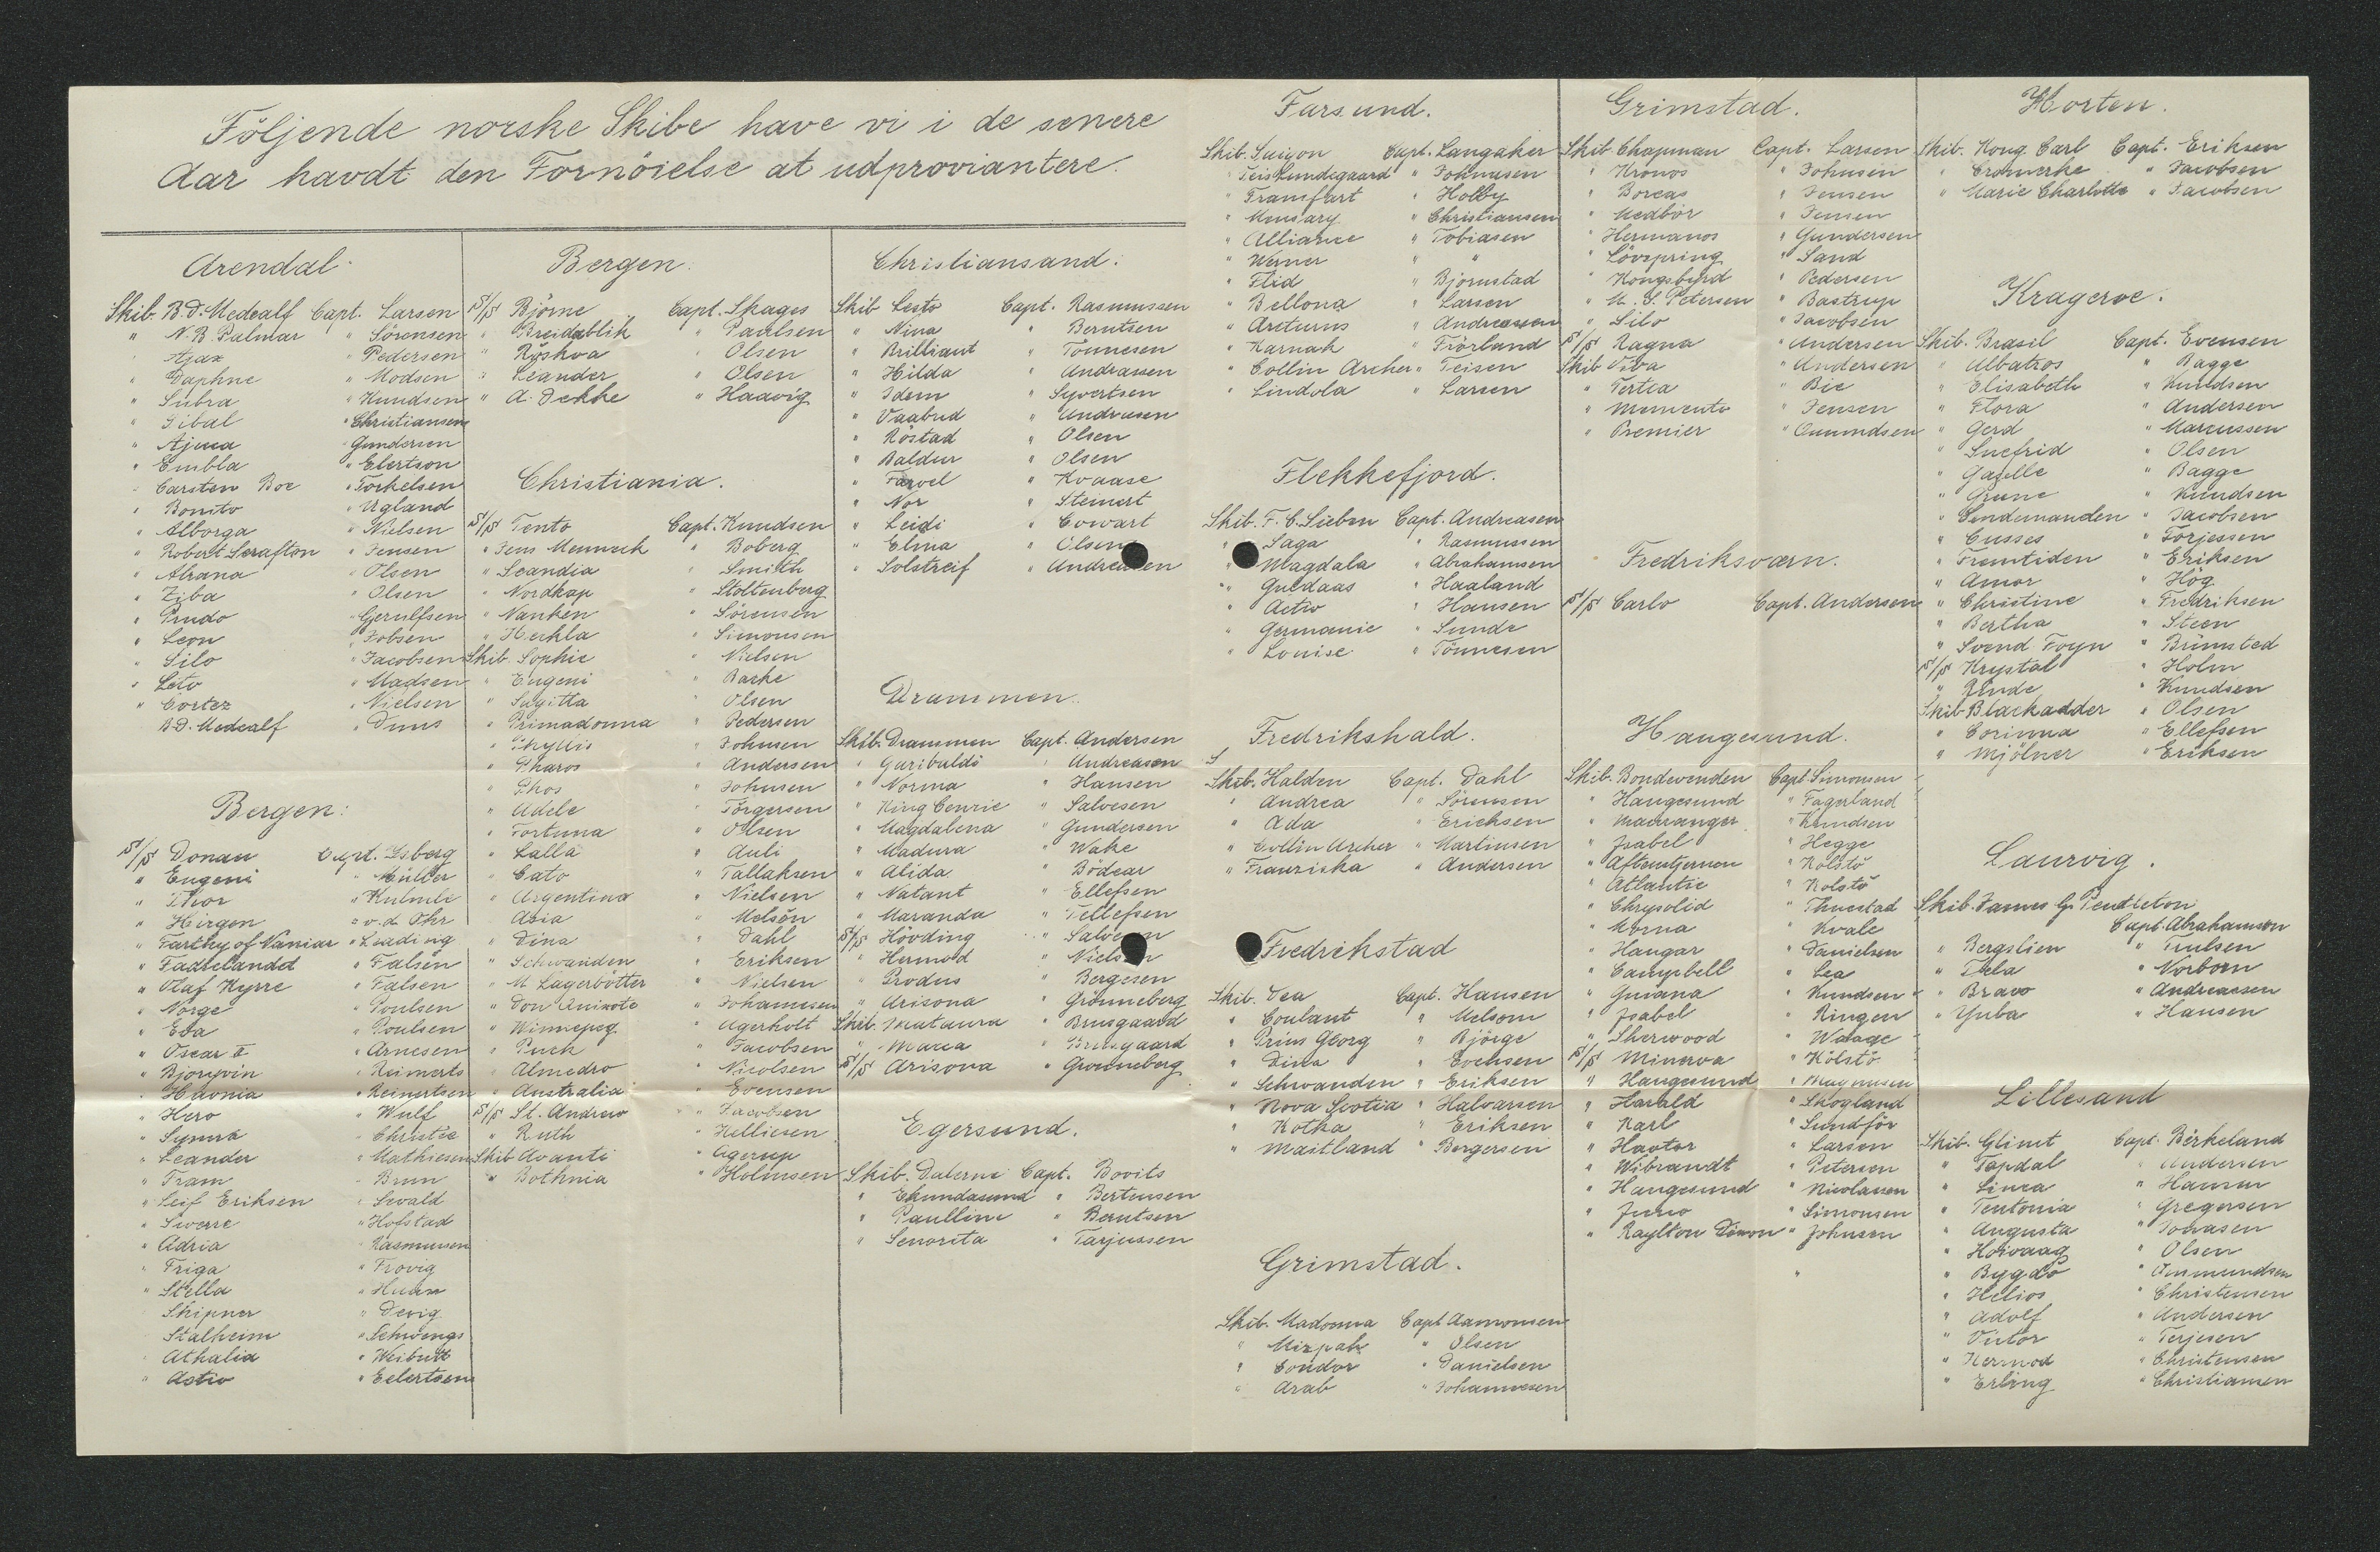 Följende norske Skibe have vi i de senere
Aar havdt den Fornöielse at udproviantere.
Arendal
Skib. B.D. Medcalf Capt. Larsen
" N.B. Palmar " Sörensen
" Ajax " Pedersen
" Daphne " Modsen
" Subra " Knudsen
" Tibal " Christiansen
" Ajma " Gundersen
" Embla " Elertson
" Carsten Boe " Torkelsen
" Bonito " Ugland
" Alborga " Nielsen
" Robert Scrafton " Jensen
" Abrana " Olsen
" Ziba " Olsen
" Prudo " Gjerulfsen
" Leon " Jobsen
" Silo " Jacobsen
" Leto " Madsen
" Cortez " Nielsen
B.D. Medcalf " Duus
Bergen:
S/S Donau Capt. Isberg
" Eugeni " Müller
" Thor " Kulmbe
" Hirgen " v.d. Ohr
" Farthy of Vaniar " Leading
" Fadrelandet " Falsen
" Olaf Kyrre " Falsen
" Norge " Poulsen
" Eva " Poulsen
" Oscar II " Arnesen
" Bjorgvin " Reimerts
" Havnia " Reinertsen
" Hero " Wulf
" Synna " Christie
" Leander " Mathiesen
" Fram " Brun
" Leif Eriksen " Sevald
" Sverre " Hofstad
" Adria " Rasmussen
" Friga " Frovig
" Stella
" Skipner " Devig
Stalheim " Schwings
" Athalia
" Activ " Eelertsen
Bergen.
S/S Björne Capt. Skages
" Breidablik " Paulsen
" Röskva " Olsen
" Leander " Olsen
" A. Dekke " Haavig
Christiania.
S/S Tento Capt. Knudsen
" Jens Mennech " Boberg
" Scandia " Smith
" Nordkap " Stoltenberg
" Nanken " Sörensen
" Heckla " Simonsen
Skib. Sophie " Nielsen
" Eugeni " Barke
" Sagitta " Olsen
" Primadonna " Pedersen
" Phyllis " Johnsen
" Pharos " Andersen
" Phos " Johnsen
" Adele " Törgersen
" Fortuna " Olsen
" Lalla " Auli
" Cato " Tallaksen
" Argentina " Nielsen
Asia " Melsön
" Dina " Dahl
" Schwanden " Eriksen
" M Lagerbötter " Nielsen
" Don Quixote " Johannesen
" Winnepeg " Agerholt
" Puck " Jacobsen
" Almedro " Nicolsen
" Australia " Evensen
S/S St. Andrew " Jacobsen
" Ruth " Helliesen
Skib Avanti " Agerup
" Bothnia " Holmsen
Christiansand:
Skib Lesto Capt. Rasmussen
" Nina " Berntsen
" Brilliant " Tönnesen
" Hilda " Andrassen
" Idem " Syvertsen
" Vaabud " Andreasen
" Röstad " Olsen
" Baldur " Olsen
" Farvel " Kvaase
" Nor " Steinert
" Leidi " Cowart
" Elma " Olsen
" Solstreif " Andreasen
Drammen.
Skib. Drammen Capt. Andersen
" Garibaldi " Andreasen
" Norma " Hansen
" King Cenric " Salvesen
" Magdalena " Gundersen
" Madura " Wake
" Alida " Bödcar
" Natant " Ellefsen
" Maranda " Tellefsen
S/S Hövding " Salvesen
" Hermod " Nielsen
" Produs " Bergesen
" Arisona " Grönneberg
Skib. Mataura " Brusgaard
" Marca " Brusgaard
S/S Arisona " Gronneberg
Egersund.
Skib. Dalerne Capt. Bovits
" Ekundasund " Bertensen
" Paulline " Berntsen
" Senorita " Tarjussen
Farsund.
Skib. Saigon Capt. Langaker
" Teis Lundegaard " Johnnesen
" Transfart " Holby
" Missary " Christiansen
" Alliance " Tobiasen
" Werner " "
" Flid " Bjornstad
" Bellona " Larsen
" Arcturus " Andreassen
" Karnak " Frörland
" Collin Archer " Teisen
" Lindola " Larsen
Flekkefjord.
Skib. F.C. Sieben Capt. Andreasen
" Saga " Rasmussen
" Magdala " Abrahamsen
" Guldaas " Haaland
" Activ " Hansen
" Germanic " Sunde
" Louise " Tönnesen
Fredrikshald.
S
Skib. Halden Capt. Dahl
" Andrea " Sörensen
" Ada " Erichsen
" Collin Archer " Martinsen
" Franziska " Andersen
Fredrikstad
Skib. Vea Capt. Hansen
" Coulant " Melsom
" Prins Georg " Björge
" Dina " Evensen
" Schwanden " Eriksen
" Nova Scotia " Halvarsen
" Kotka " Eriksen
" Maitland " Bergersen
Grimstad.
Skib. Madonna Capt Aamonsen
" Mizpah " Olsen
" Condor " Danielsen
" Arab " Johannesen
Grimstad.
Skib Chapman Capt. Larsen
" Kronos " Johnsen
" Boreas " Jensen
" Medbör " Jensen
" Hermanos " Gundersen
" Lövspring " Sand
" Kongsbyrd " Pedersen
" M. S. Petersen " Bastrup
" Silo " Jacobsen
S/S Ragna " Andersen
Skib Viba " Andersen
" Tertia " Bie
" Memento " Jensen
" Premier " Omundsen
Fredriksværn.
S/S Carlo Capt. Andersen
Haugesund.
Skib. Bondevenden Capt Simonsen
" Haugesund " Fagerland
" Mauranger " Knudsen
" Isabel " Hegge
" Aftenstjernen " Kolstö
" Atlantic " Kolstö
" Chrysolid " Thuestad
" Morna " Kvale
" Haugar " Danielsen
" Campbell " Lea
" Guiana " Knudsen
" Isabel " Ringen
" Sherwood " Waage
S/S Minerva " Kölstö
" Haugesund " Magnusen
" Harald " Skogland
" Karl " Sundför
" Havtor " Larsen
" Wibrandt " Petersen
" Haugesund " Nicolausen
" Juno " Simonsen
" Raylton Dixon " Johnsen
Horten.
Skib. Kong Carl Capt. Eriksen
" Cromverke " Jacobsen
" Marie Charlotte " Jacobsen
Krageroe.
Skib. Brasil Capt. Evensen
" Albatros " Bagge
" Elisabeth " Knudsen
" Flora " Andersen
" Gerd " Marcussen
" Snefrid " Olsen
" Gaselle " Bagge
" Grane " Knudsen
" Sendemanden " Jacobsen
" Cusses " Torjessen
" Fremtiden " Eriksen
" Amor " Hög
" Christine " Fredriksen
" Bertha " Steen
" Svend Foyn " Brünsted
S/S Krystal " Holm
" Rinde " Knudsen
Skib Blackadder " Olsen
" Corinna " Ellefsen
" Mjölner " Eriksen
Laurvig.
Skib. James G. Pendleton
Capt. Abrahamson
" Bergslien " Trulsen
" Thela " Norborn
" Bravo " Andreassen
" Yuba " Hansen
Lillesand
Skib. Glimt Capt. Berkeland
" Topdal " Andersen
" Linea " Hansen
" Teutonia " Gregersen
" Augusta " Tobiasen
" Hoivaag " Olsen
" Bygdö " Osmundsen
" Helios " Christensen
" Adolf " Andersen
" Victor " Terjesen
" Hermod " Christensen
" Erling " Christiansen